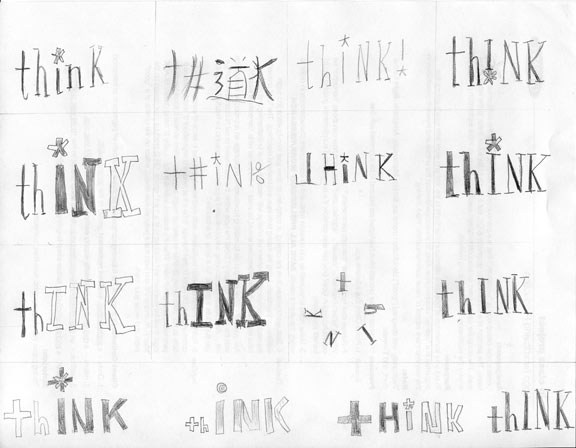 thinK t#道K thiNK! thINK
thiNK t#iN% THiNK thiNK
thINK thINK t H I N K thINK
thiNK thiNK tHiNK thINK